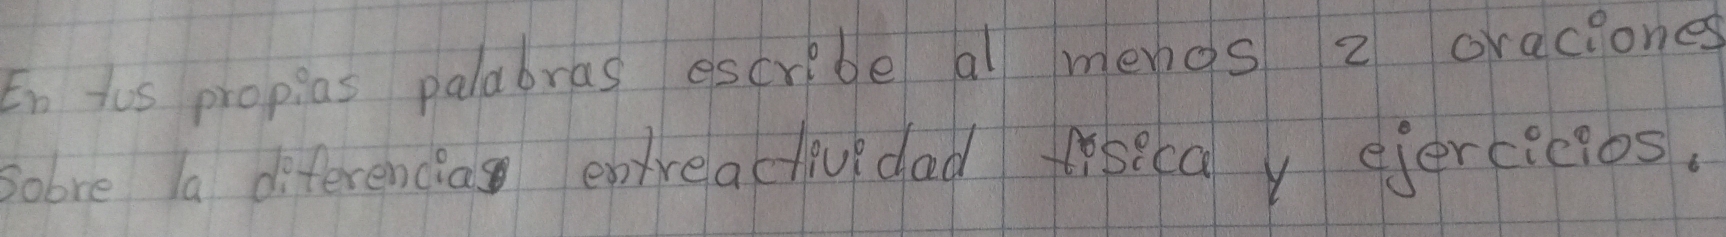 En tus propias palabras escribe al menos 2 oraciones
Sobre la diferencias entreactividad física y ejercicios.